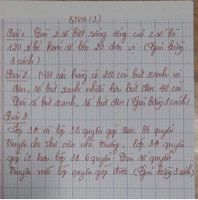 BTVN (3)
Bài 1. Tìm 2 số biết rằng tổng của 2 số là
120. số bé kém số lớn 20 đơn vị (Giải bằng
3 cách)
Bài 2. Một cái thùng có 200 cái bút xanh và
đen, số bút xanh nhiều hơn bút đen 40 cái
Tìm số bút xanh, số bút đen (Giải bằng 3 cách)
Bài 3.
Lớp 3A và lớp 3B quyên góp được 86 quyển
truyện cho thư viện nhà trường, lớp 3A quyên
góp ít hơn lớp 3B 6 quyển. Tìm số quyển
truyện mỗi lớp quyên góp được (Giải bằng 3 cách)